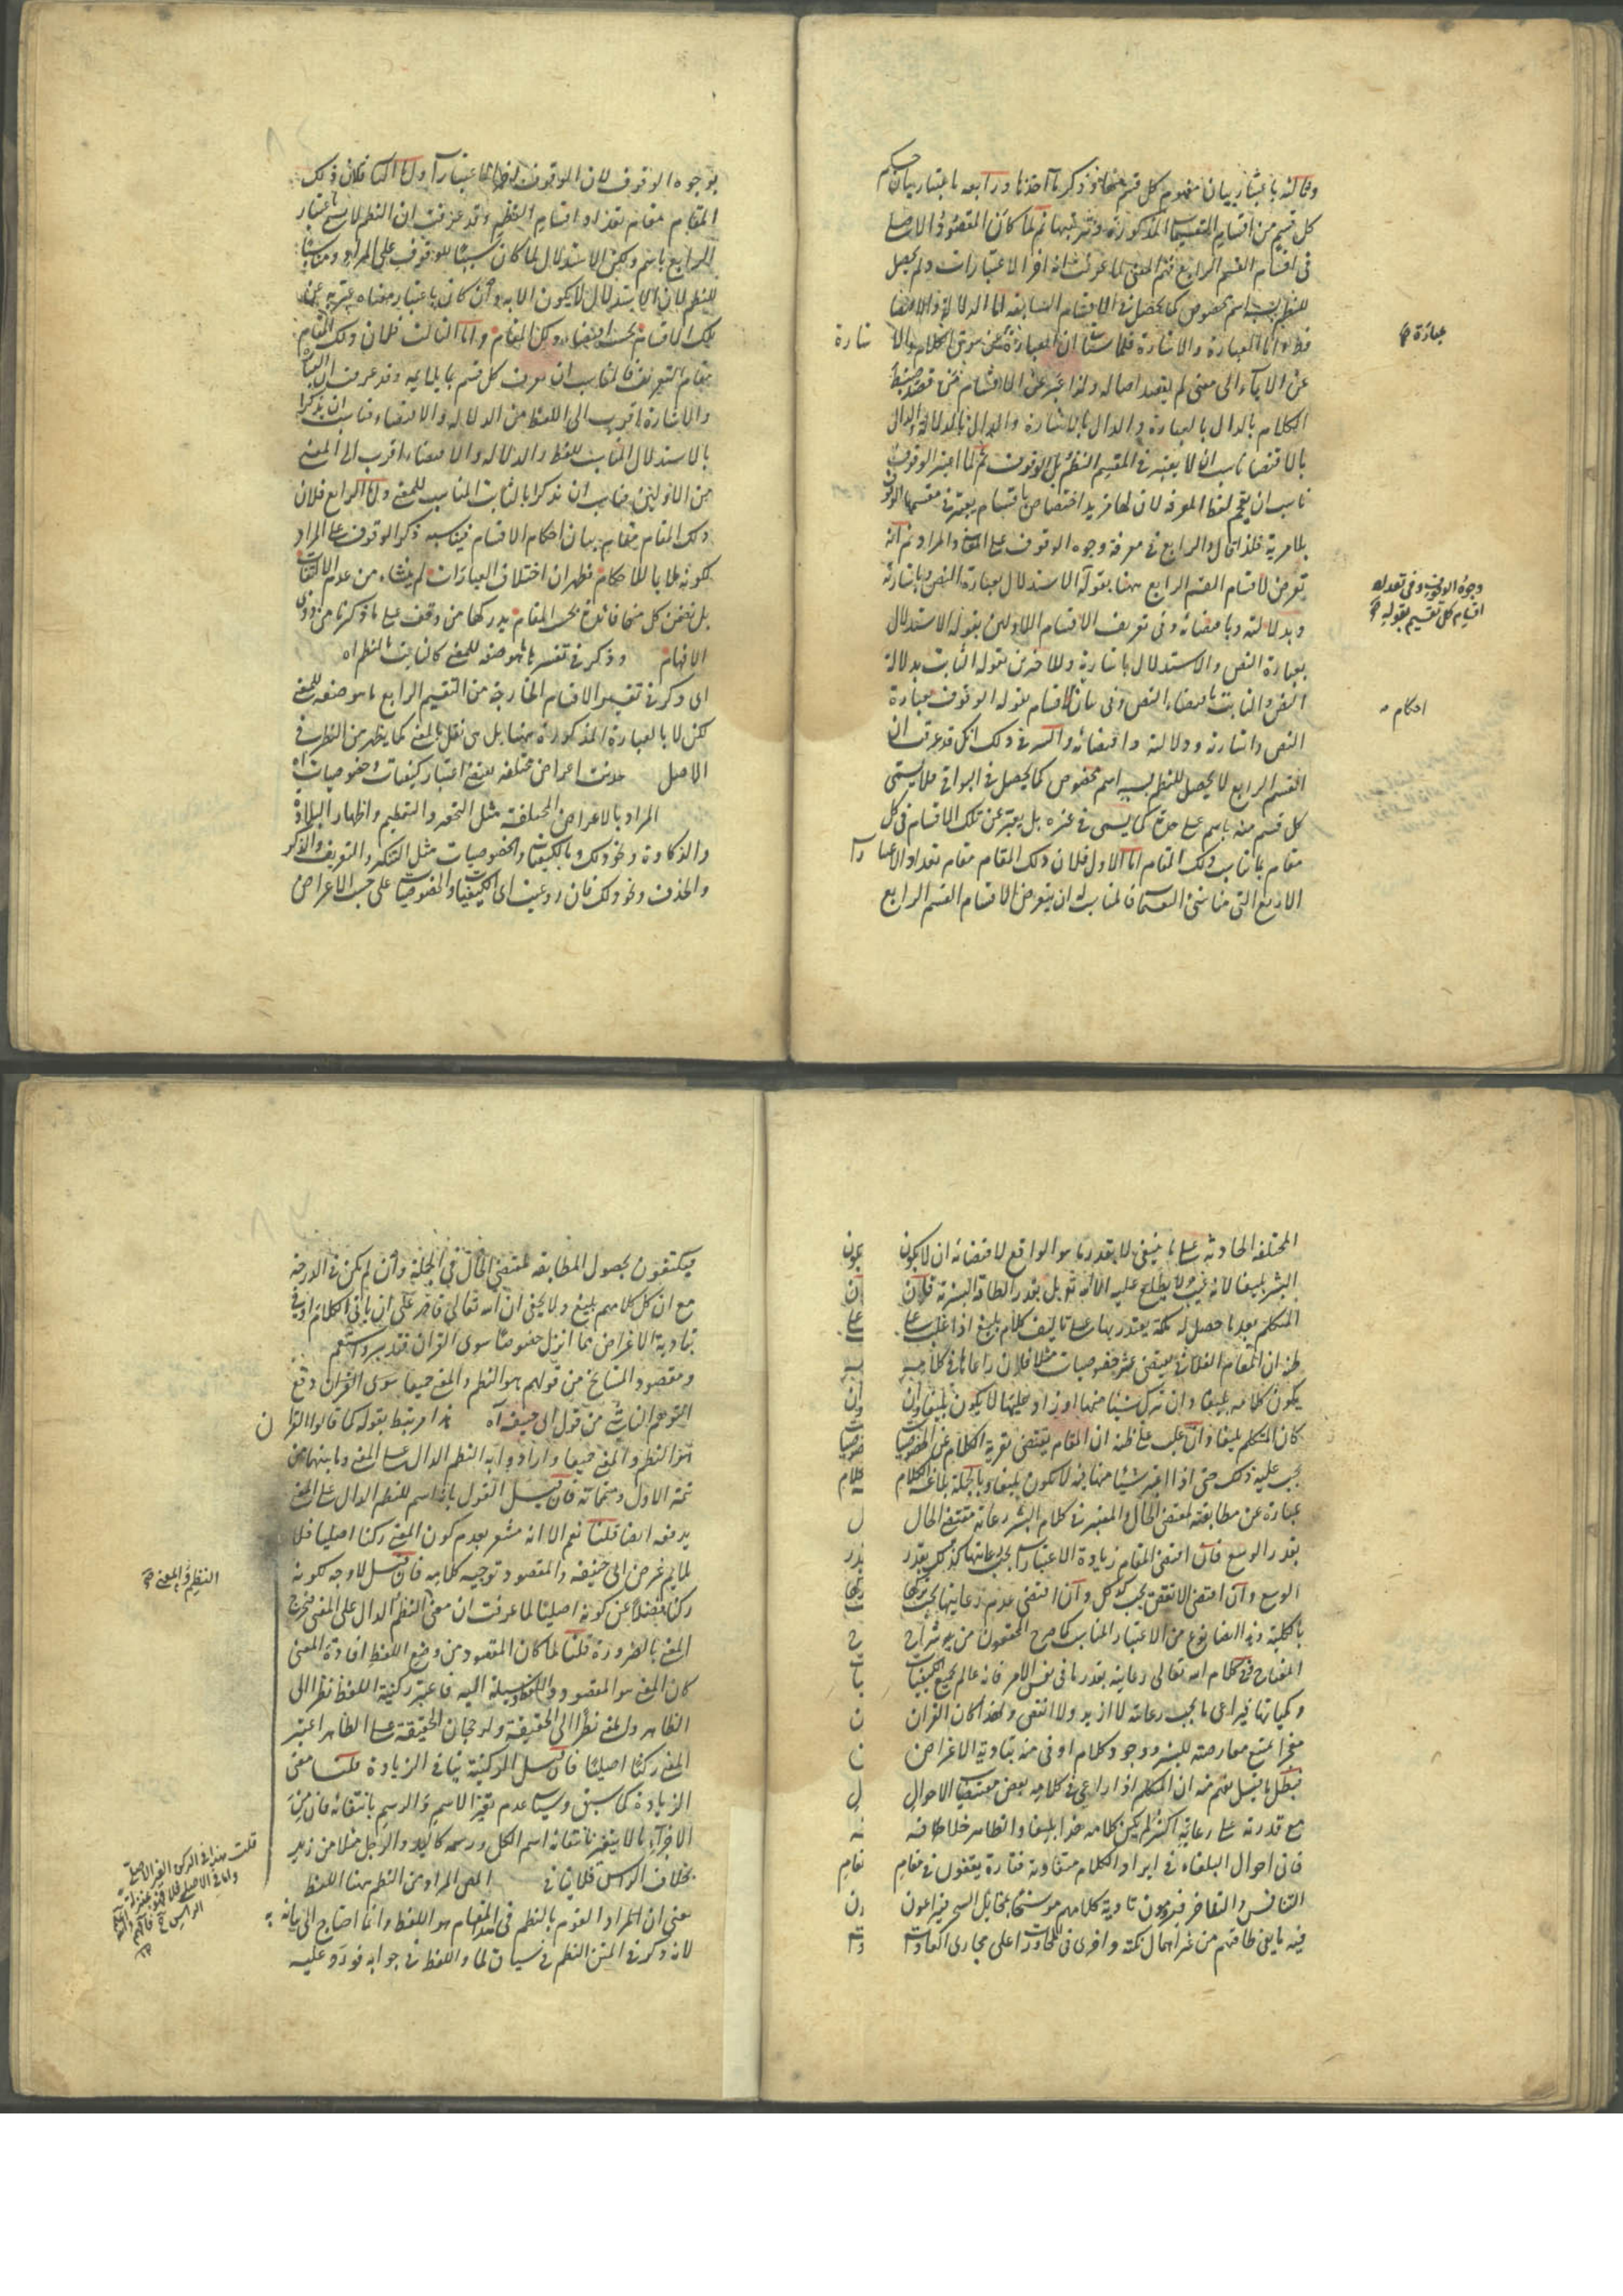 وثالثه باعتبار بيان مفهوم كل قسم منها وذكر مأخذها ورابعه باعتبار بيان حكم
كل قسم من اقسام التقسيمات المذكورة وترتيبها ثم لما كان المقصود الاصلي
في اقسام القسم الرابع فهم المعنى لما عرفت انه آخر الاعتبارات ولم يحصل
للنظم بسببه اسم مخصوص كما يحصل في الاقسام السابقة اما الدلالة والاقتضاء
فظ واما العبارة والاشارة فلما ان العبارة عن سوق الكلام والاشارة
عبارة
عن الايماء الى معنى لم يقصد اصالة ولذا عبر عن الاقسام من قصد ضبط
الكلام بالدال بالعبارة والدال بالاشارة والدال بالدلالة والدال
بالاقتضاء ناسب ان لا يعتبر في المقسم النظم بل الوقوف ثم لما اعتبر الوقوف
ناسب ان يقحم لفظ المعرفة لان لها مزيد اختصاص باقسام يعتبر في مقسمها الوقوف
بلا مرية فلذا قال والرابع في معرفة وجوه الوقوف على المعنى والمراد ثم انه
تعرض لاقسام القسم الرابع ههنا بقوله الاستدلال بعبارة النص وباشارته
وجوه الوقوف وفي تعداد
اقسام كل تقسيم بقوله
وبدلالته وباقتضائه وفي تعريف الاقسام الاولين بقوله الاستدلال
بعبارة النص والاستدلال باشارته وللآخرين بقوله الثابت بدلالة
النص والثابت باقتضاء النص وفي بيان الاقسام بقوله الوقوف بعبارة
احكام
النص واشارته ودلالته واقتضائه والسر في ذلك انك قد عرفت ان
القسم الرابع لا يحصل للنظم بسببه اسم مخصوص كما يحصل في البواقي فلا يسمى
كل قسم منه باسم على حدة كما يسمى في غيره بل يعبر عن تلك الاقسام في كل
مقام بما يناسب ذلك المقام اما الاول فلان ذلك المقام مقام تعداد الاعتبارات
الاربع التي هي التقسيمات فالمناسب ان يتعرض لاقسام القسم الرابع
بوجوه الوقوف لان الوقوف ايضا اعتبار واما الثاني فلان ذلك
المقام مقام تعداد اقسام النظم وقد عرفت ان النظم لا يسمى باعتبار
الرابع باسم ولكن الاستدلال لما كان سببا للوقوف على المراد ومناسبا
للنظم لان الاستدلال لا يكون الا به وان كان باعتبار معناه عبر به عن
تلك الاقسام بحسب اقتضاء ذلك المقام واما الثالث فلان ذلك المقام
مقام التعريف فالمناسب ان يعرف كل قسم بما يلايمه وقد عرفت ان العبارة
والاشارة اقرب الى اللفظ من الدلالة والاقتضاء فناسب ان يذكرا
بالاستدلال المناسب للفظ والدلالة والاقتضاء اقرب الى المعنى
من الاولين فناسب ان يذكرا بالثابت المناسب للمعنى واما الرابع فلان
ذلك المقام مقام بيان احكام الاقسام فيناسبه ذكر الوقوف على المراد
لكونه ملابا للاحكام فظهر ان اختلاف العبارات لم ينشاء من عدم الالتفات
بل تضمن كل منها فائدة بحسب المقام يدركها من وقف على ما ذكرنا من ذوي
الافهام وذكر في تفسيرها ما هو صفة للمعنى كالثابت بالنظم اه
اي ذكر في تفسير الاقسام الخارجة من التقسيم الرابع ما هو صفة للمعنى
لكن لا بالعبارة المذكورة ههنا بل هي نقل بالمعنى كما يظهر من النظر في
الاصل حدثت اعراض مختلفة يقتضي اعتبار كيفيات وخصوصيات اه
المراد بالاعراض المختلفة مثل التحقير والتعظيم واظهار البلادة
والذكاوة ونحو ذلك وبالكيفيات والخصوصيات مثل التنكير والتعريف والذكر
والحذف ونحو ذلك فان روعيت اي الكيفيات والخصوصيات على حسب الاعراض
المختلفة الحادثة على ما ينبغي لا بقدر ما هو الواقع لاقتضائه ان لا يكون
البشر بليغا لانه غيب ولا يطلع عليه الا الله تع بل بقدر الطاقة البشرية فان
المتكلم بعد ما حصل له ملكة يقتدر بها على تاليف كلام بليغ اذا غلب على
ظنه ان المقام الفلاني يقتضي عشر خصوصيات مثلا فلان راعاها في كلامه
يكون كلامه بليغا وان ترك شيئا منها او زاد عليها لا يكون بليغا وان
كان المتكلم بليغا وان غلب على ظنه ان المقام يقتضي تعرية الكلام عن الخصوصيات
يجب عليه ذلك حتى اذا اعتبر شيئا منها فيه لا يكون بليغا وبالجملة بلاغة الكلام
عبارة عن مطابقته لمقتضى الحال والمعتبر في كلام البشر رعاية مقتضى الحال
بقدر الوسع فان اقتضى المقام زيادة الاعتبارات يجب رعايتها كذلك بقدر
الوسع وان اقتضى الانقص يجب كل وان اقتضى عدم رعايتها يجب تركها
بالكلية وهذا ايضا نوع من الاعتبار المناسب كما صرح المحققون من شراح
المفتاح وفي كلام الله تعالى رعايته بقدر ما في نفس الامر فانه عالم بجميع الكيفيات
وكمياتها فيراعي ما يجب رعايته لا ازيد ولا انقص ولهذا كان القران
معجزا يمتنع معارضته للبشر ووجود كلام اوفى منه بتادية الاغراض
فبطل ما قيل يفهم منه ان المتكلم اذا راعى في كلامه بعض مقتضيات الاحوال
مع قدرته على رعاية اكثر لم يكن كلامه هذا بليغا والظاهر خلافه
فان احوال البلغاء في ايراد الكلام متفاوتة فتارة يقفون في مقام
التنافس والتفاخر فيريدون تادية كلامهم موشحا بمخايل السحر فيراعون
فيه ما يفي طاقتهم من غير اهمال نكتة واخرى في المحاورات على مجاري العادات
فيكتفون بحصول المطابقة لمقتضى الحال في الجملة وان لم يكن في الدرجة
مع ان كل كلامهم بليغ ولا يخفى ان الله تعالى قادر على ان ياتي الكلام اوفى
بتادية الاغراض مما انزل خصوصا سوى القران فتدبر واستقم
ومقصود المشايخ من قولهم هو النظم والمعنى جميعا سوى القران دفع
التوهم الناشي من قول ابي حنيفة اه هذا مرتبط بقوله كما قالوا القران
هو النظم والمعنى جميعا وارادوا به النظم الدال على المعنى وما بينهما من
تتمة الاول ومتمماته فان قيل القول بانه اسم للنظم الدال على المعنى
يدفعه ايضا قلنا نعم الا انه مشعر بعدم كون المعنى ركنا اصليا فلا
يلايم غرض ابي حنيفة والمقصود توجيه كلامه فان قيل لا وجه لكونه
النظم والمعنى
ركنا فضلا عن كونه اصليا لما عرفت ان معنى النظم الدال على المعنى فخرج
المعنى بالضرورة قلنا لما كان المقصود من وضع اللفظ افادة المعنى
كان المعنى هو المقصود واللفظ وسيلة اليه فاعتبر ركنية اللفظ نظرا الى
الظاهر والمعنى نظرا الى الحقيقة ولرجحان الحقيقة على الظاهر اعتبر
المعنى ركنا اصليا فان قيل الركنية ينافي الزيادة قلنا معنى
الزيادة كما سبق وسيأتي عدم تغير الاسم والرسم بانتفائه فان من
الاجزاء ما لا يتغير بانتفائه اسم الكل ورسمه كاليد والرجل مثلا من زيد
بخلاف الراس فلا ينافي المعنى المراد من النظم ههنا اللفظ
قلت هذا في الركن الغير الاصلي
واما في الاصلي فلا فهو بمنزلة
الراس
يعني ان المراد القوم بالنظم في هذا المقام هو اللفظ وانما احتاج الى بيانه
لانه ذكر في المتن النظم في سياق لما واللفظ في جوابه فورد عليه